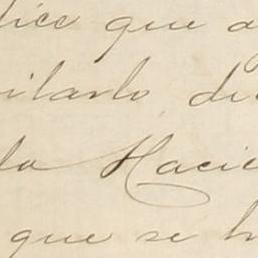 dice que a
ilarlo di
la Hacie
que se h